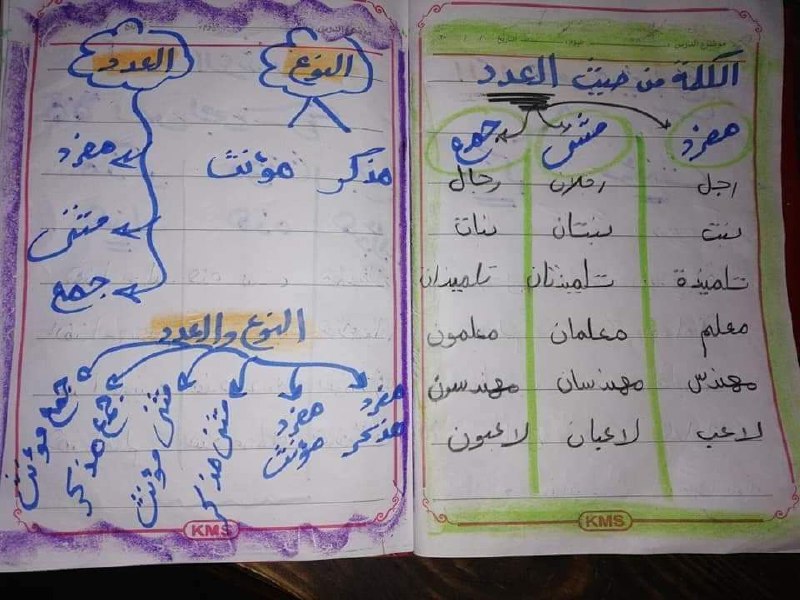 الكلمة من حيث العدد
مفرد مثنى جمع
رجل رجلان رجال
بنت بنتان بنات
تلميذة تلميذتان تلميدان
معلم معلمان معلمون
مهندس مهندسان مهندسون
لاعب لاعبان لاعبون
KMS
النوع
مذكر مؤنث
العدد
مفرد
مثنى
جمع
النوع والعدد
مفرد مذكر
مفرد مؤنث
مثنى مذكر
مثنى مؤنث
جمع مذكر
جمع مؤنث
KMS